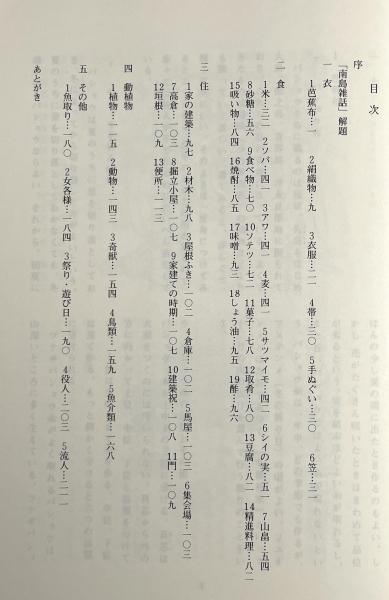 目次
序
「南島雑話」解題
一 衣
1芭蕉布…一 2絹織物…九 3衣服…二一 4帯…三〇 5手ぬぐい…三〇 6笠…三一
二 食
1米…三二 2ソバ…四一 3アワ…四一 4麦…四一 5サツマイモ…四二 6シイの実…五一 7山畠…五四
8砂糖…五六 9食べ物…七〇 10ソテツ…七二 11菓子…七八 12取肴…八〇 13豆腐…八二 14精進料理…八二
15吸い物…八四 16焼酎…八五 17味噌…九三 18しょう油…九五 19酢…九六
三 住
1家の建築…九七 2材木…九八 3屋根ふき…一〇二 4倉庫…一〇二 5馬屋…一〇三 6集会場…一〇三
7高倉…一〇三 8掘立小屋…一〇七 9家建ての時期…一〇七 10建築祝…一〇八 11門…一〇九
12垣根…一〇九 13便所…一一三
四 動植物
1植物…一一五 2動物…一四三 3奇獣…一五四 4鳥類…一五九 5魚介類…一六八
五 その他
1魚取り…一八〇 2女各様…一八四 3祭り・遊び日…一九〇 4役人…二〇三 5流人…二一一
あとがき